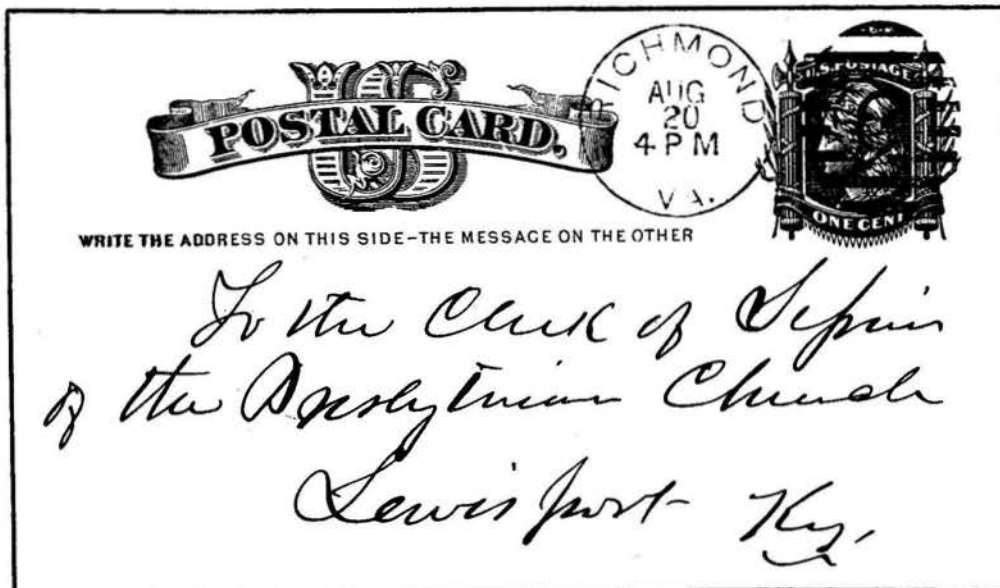 US
POSTAL CARD.
RICHMOND
AUG
20
4 PM
VA.
U.S. POSTAGE
ONE CENT
WRITE THE ADDRESS ON THIS SIDE-THE MESSAGE ON THE OTHER
To the Clerk of Session
of the Presbyterian Church
Lewisport Ky.